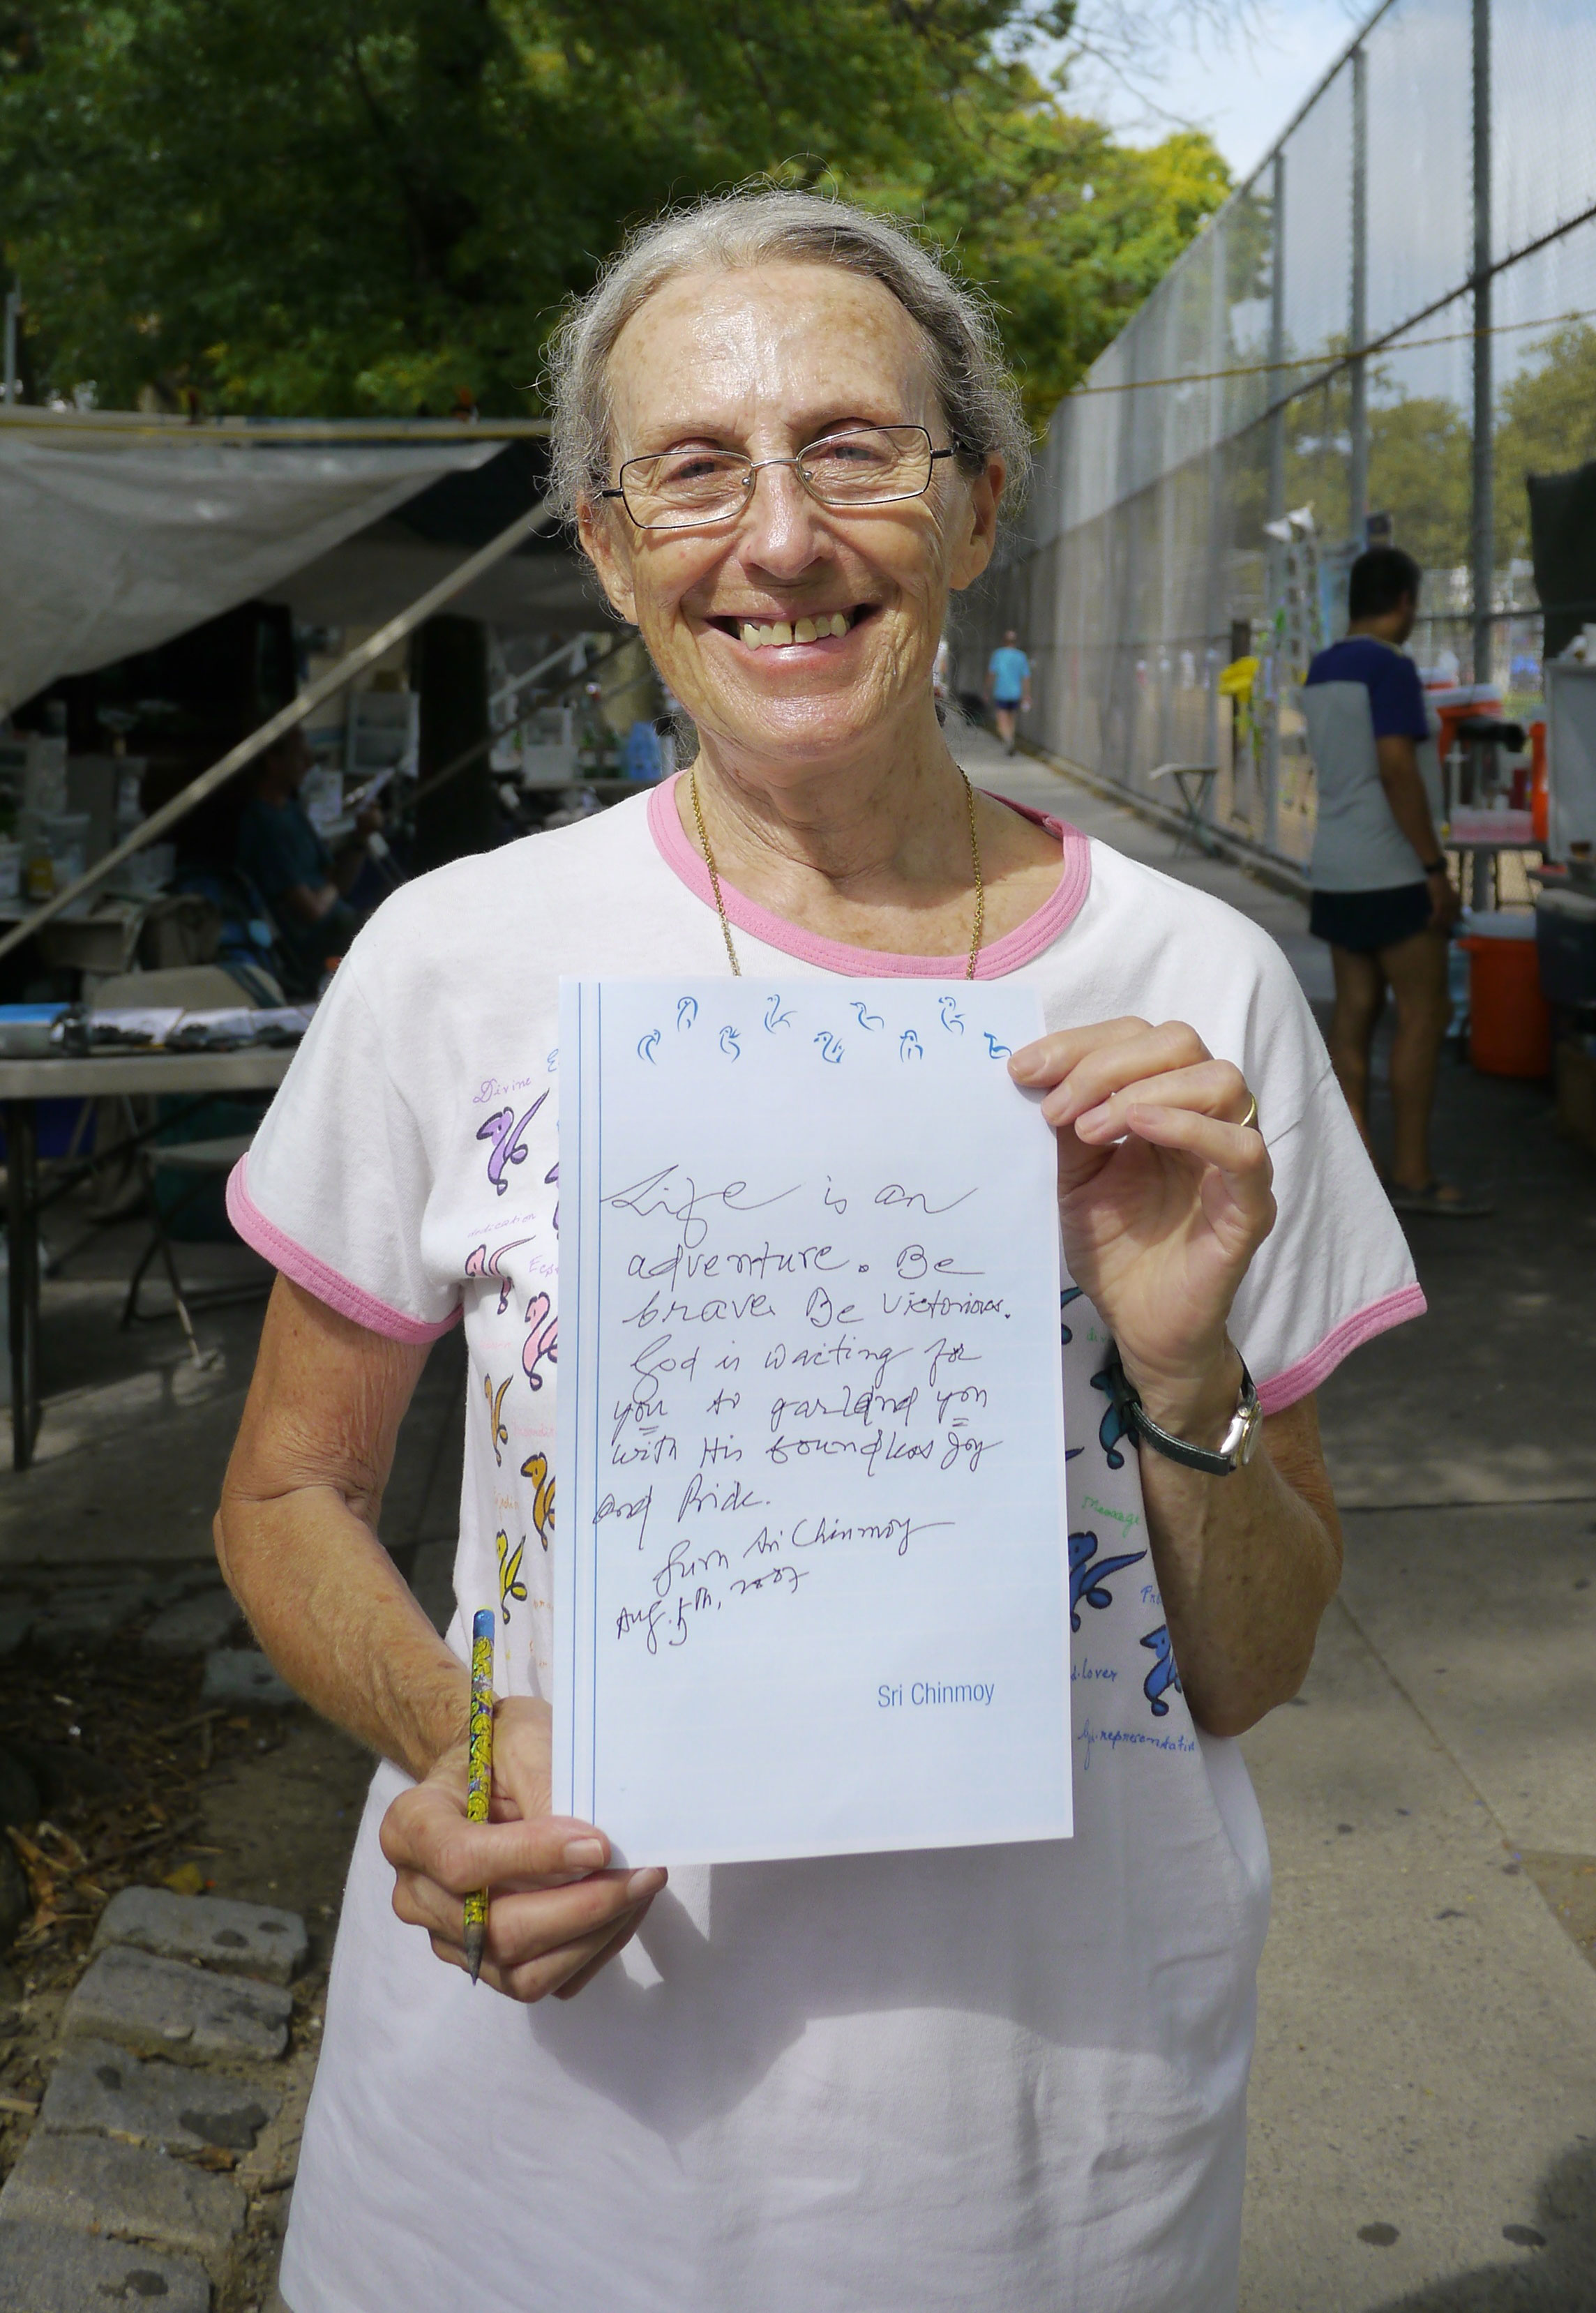 Divine
dedication
Life is an
adventure. Be
brave. Be victorious.
God is waiting for
you to garland you
with His boundless Joy
and Pride.
from Sri Chinmoy
Aug. 5th, 2007
Sri Chinmoy
Message
lover
representative